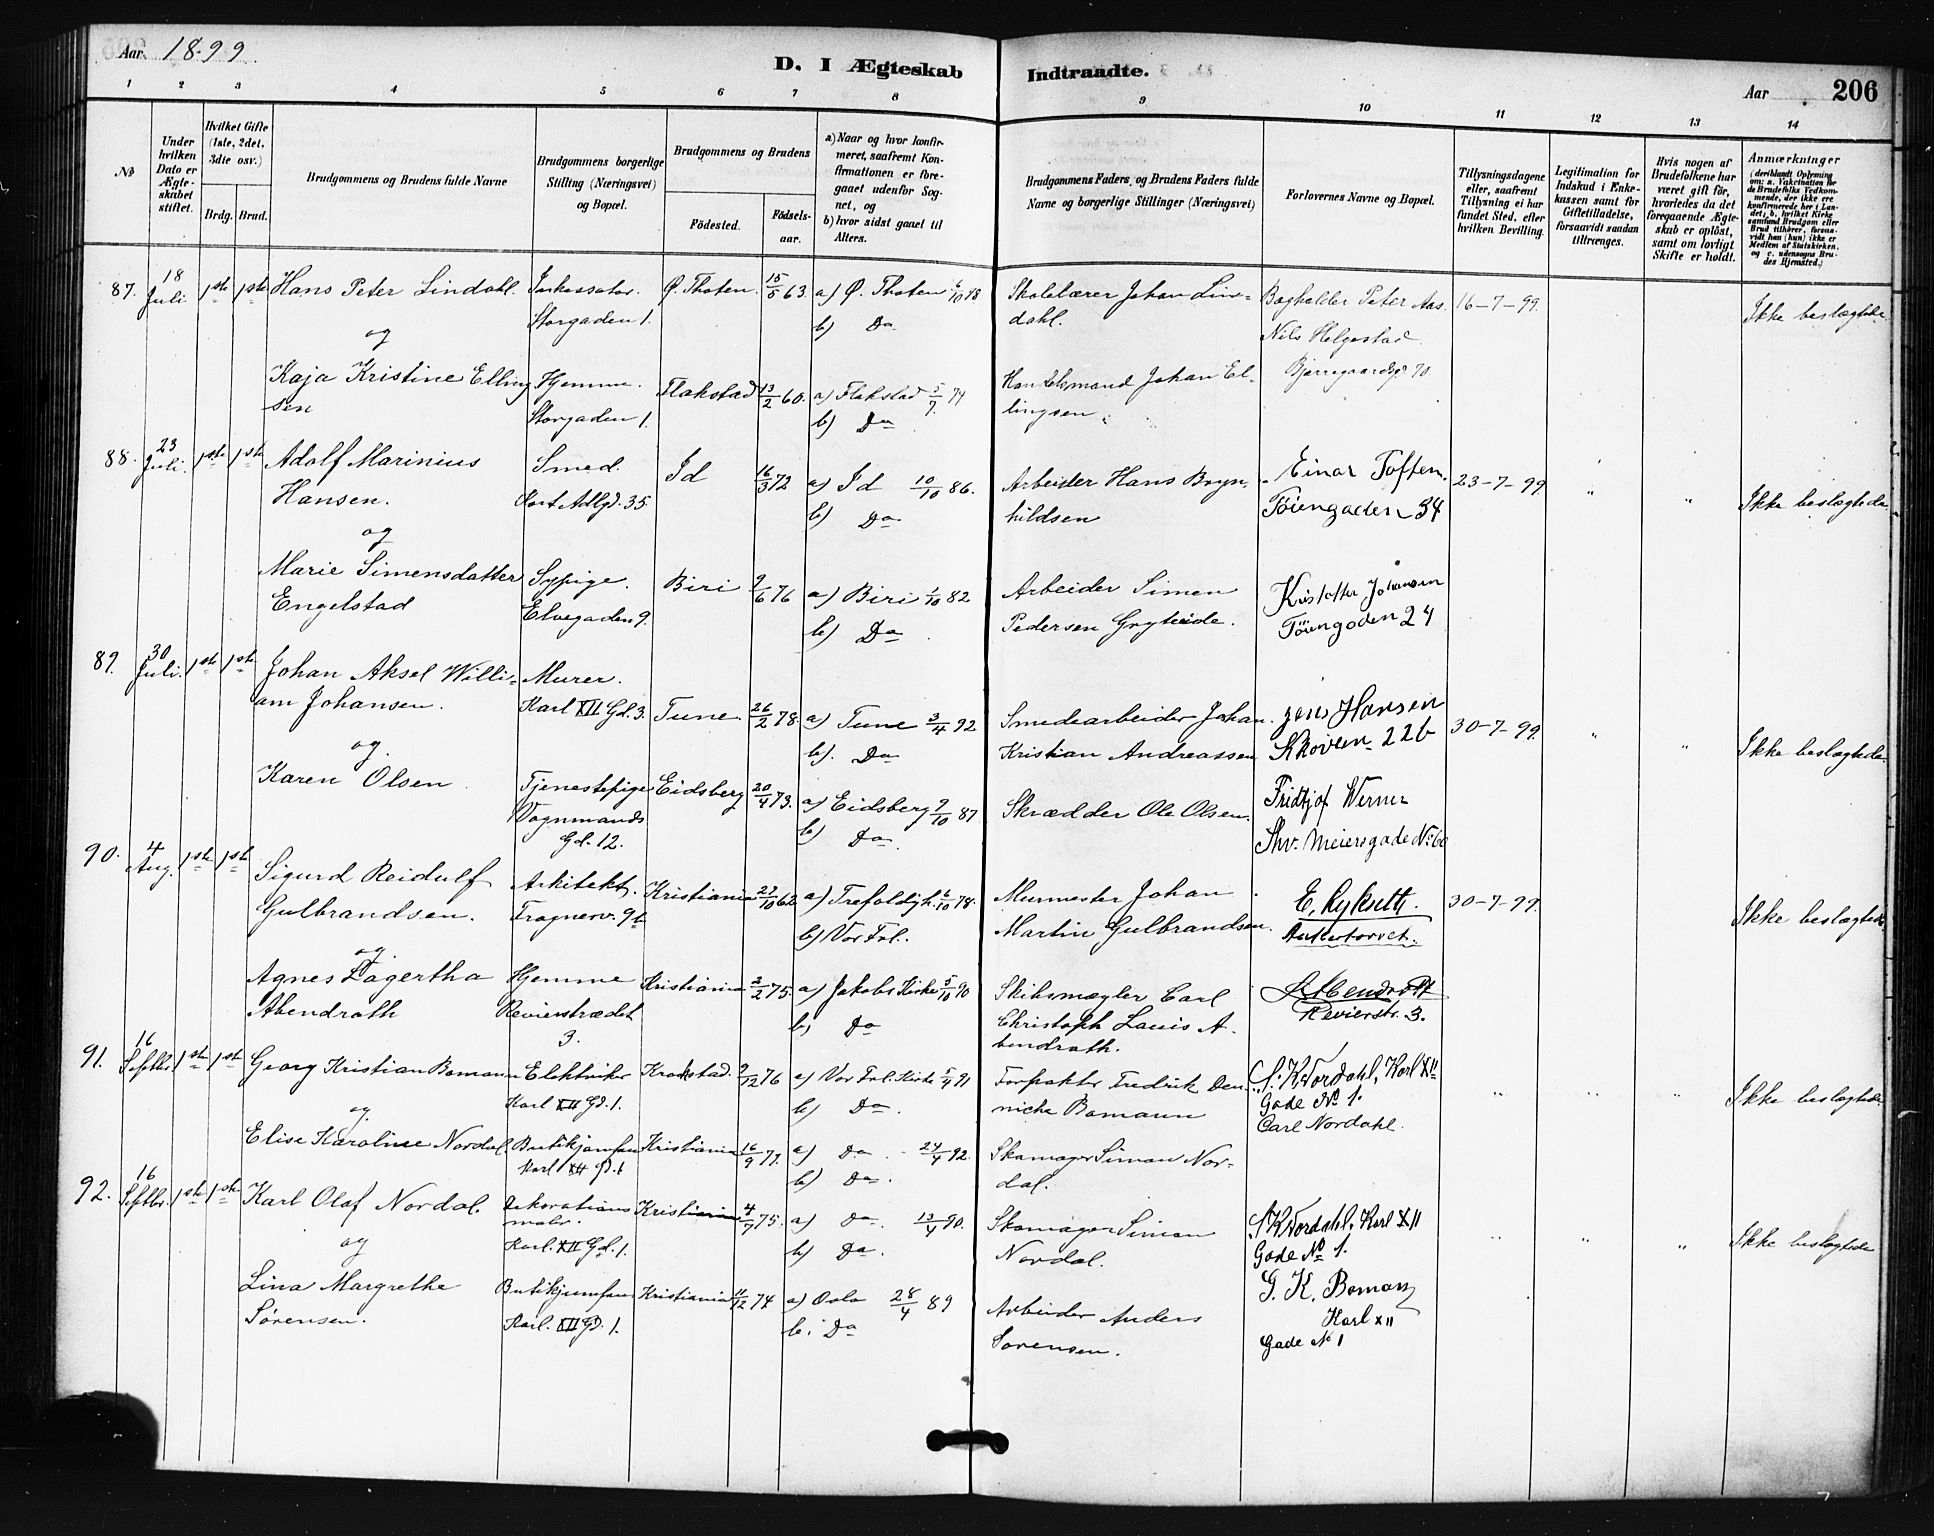 Aar 1899.
D. I Ægteskab Indtraadte.
Aar 206
1 2 3 4 5 6 7 8 9 10 11 12 13 14
No
Under hvilken Dato er Ægteskabet stiftet.
Hvilket Gifte (1ste, 2det, 3die osv.)
Brdg. Brud.
Brudgommens og Brudens fulde Navne
Brudgommens borgerlige Stilling (Næringsvei) og Bopæl.
Brudgommens og Brudens
Födested. Födselsaar.
a) Naar og hvor konfirmeret, saafremt Konfirmationen er foregaaet udenfor Sognet, og
b) hvor sidst gaaet til Alters.
Brudgommens Faders og Brudens Faders fulde Navne og borgerlige Stillinger (Næringsvei)
Forlovernes Navne og Bopæl.
Tillysningsdagene eller, saafremt Tillysning ei har fundet Sted, efter hvilken Bevilling.
Legitimation for Indskud i Enkekassen samt for Giftetilladelse, forsaavidt saadan tiltrænges.
Hvis nogen af Brudefolkene har været gift för, hvorledes da det foregaaende Ægteskab er oplöst, samt om lovligt Skifte er holdt.
Anmærkninger
(deriblandt Oplysning om: a. Vakcination for de Brudefolks Vedkommende, der ikke ere konfirmerede her i Landet; b. hvilket Kirkesamfund Brudgom eller Brud tilhörer, forsaavidt han (hun) ikke er Medlem af Statskirken, og c. udensogns Brudes Hjemsted.)
87. 18 Juli 1ste 1ste Hans Peter Lindahl. Inkassator. Storgaden 1. Ø. Thoten. 15/5 63. a) Ø. Thoten 6/10 78 b) Do Skolelærer Johan Lindahl. Bogholder Peter Aas. Nils Helgestad Bjerregaardsgd 70. 16-7-99. Ikke beslægtede.
og
Kaja Kristine Ellingsen Hjemme. Storgaden 1. Flakstad 13/2 60. a) Flakstad 5/7 74 b) Do Handelsmand Johan Ellingsen.
88. 23 Juli. 1ste 1ste Adolf Marinius Hansen. Smed. Id 16/3 72 a) Id 10/10 86. b) Do Arbeider Hans Brynhildsen Einar Toften. Töiengaden 34 23-7-99. " " Ikke beslægtede.
og
Marie Simensdatter Engelstad Sypige. Elvegaden 9. Biri 9/6 76 a) Biri 1/10 82 b) Do. Arbeider Simen Pedersen Gryteide. Kristoffer Johansen Töiengaden 24
89. 30 Juli. 1ste 1ste Johan Aksel William Johansen. Murer. Karl XII Gd. 3. Tune. 26/2 78. a) Tune 3/4 92 b). Do Smedearbeider Johan Kristian Andreassen Jens Hansen Skoveien 22b 30-7-99. " " Ikke beslægtede.
og.
Karen Olsen Tjenestepige Vognmands Gd. 12. Eidsberg 20/4 73. a) Eidsberg 9/10 87 b) Do. Skrædder Ole Olsen. Fridtjof Werner Thv. Meiersgade No 60
90. 4 Aug. 1ste 1ste Sigurd Reidulf Gulbrandsen. Arkitekt. Frognerv. 9b Kristiania 27/10 62. a) Trefoldigh. 6/10 78. b) Vor Frl. Murmester Johan Martin Gulbrandsen. E. Ankertorvet. 30-7-99. Ikke beslægtede
og.
Agnes Lagertha Abendroth Hjemme Revierstrædet 3. Kristiania 2/2 75. a) Jakobs Kirke 5/10 90 b) Do Skibsmægler Carl Christoph Louis Abendroth. Abendroth Revierstr. 3.
91. 16 Septbr. 1ste 1ste Georg Kristian Bomann Elektriker Karl XII Gd. 1. Krokstad. 9/12 76 a) Vor Frl. Kirke 5/4 91 b) Do. Forpakter Fredrik Denniche Bomann S. K. Nordahl, Karl XII Gade No 1. Carl Nordahl. " " " Ikke beslægtede.
og.
Elise Karoline Nordal. Butikjomfru Karl XII Gd. 1 Kristiania 16/9 77. a) Do. 24/4 92. b) Do. Skomager Simon Nordal.
92. 16 Septbr. 1ste 1ste Karl Olaf Nordal. Dekorationsmaler. Karl. XII Gd. 1. Kristiania 4/9 75. a) Do. 13/4 90. b) Do. Skomager Simon Nordal. S. K Nordahl, Karl XII Gade No 1. " " " Ikke beslægtede
og
Lina Margrethe Sörensen. Butikjomfru Karl. XII Gd. 1. Kristiania 11/12 74 a) Oslo 28/4 89 b) Do Arbeider Anders Sörensen. G. K. Boman Karl XII Gade No 1